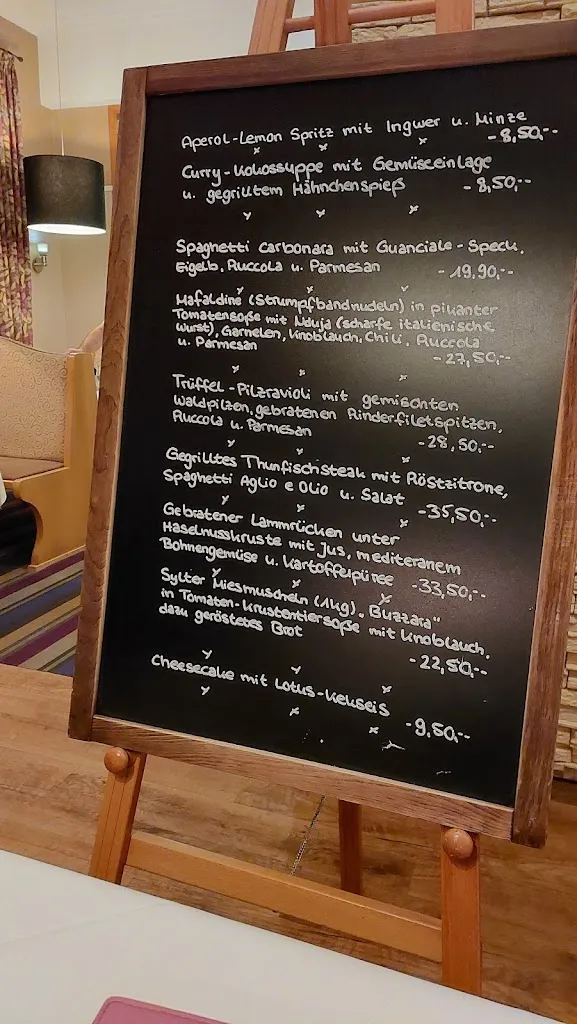 Aperol-Lemon Spritz mit Ingwer u. Minze
- 8,50,--
Curry-Kokossuppe mit Gemüseeinlage
u. gegrilltem Hähnchenspieß - 8,50,--
Spaghetti Carbonara mit Guanciale-Speck,
Eigelb, Ruccola u. Parmesan - 19,90,--
Mafaldine (Strumpfbandnudeln) in pikanter
Tomatensoße mit Nduja (scharfe italienische
Wurst), Garnelen, Knoblauch, Chili, Ruccola
u. Parmesan - 27,50,--
Trüffel-Pilzravioli mit gemischten
Waldpilzen, gebratenen Rinderfiletspitzen,
Ruccola u. Parmesan - 28,50,--
Gegrilltes Thunfischsteak mit Röstzitrone,
Spaghetti Aglio e Olio u. Salat - 35,50,--
Gebratener Lammrücken unter
Haselnusskruste mit Jus, mediteranem
Bohnengemüse u. Kartoffelpüree - 33,50,--
Sylter Miesmuscheln (1kg) „Buzzara"
in Tomaten-Krustentiersoße mit Knoblauch,
dazu geröstetes Brot - 22,50,--
Cheesecake mit Lotus-Kekseis - 9,50,--